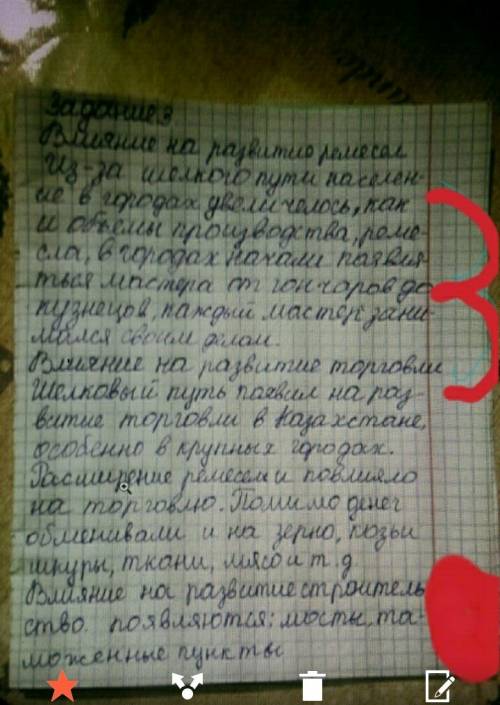 Задание3
Влияние на развитие ремесел
Из-за шелкого пути населен-
ие в городах увеличелось, как
и объемы производства, реме-
сла, в городах начали появля-
ться мастера от гончаров до
кузнецов, каждый мастер зани-
мался своим делом.
Влияние на развитие торговли
Шелковый путь повлиял на раз-
витие торговли в Казахстане,
особенно в крупных городах.
Расширение ремесел и повлияло
на торговлю. Помимо денег
обменивали и на зерно, козьи
шкуры, ткани, мясо и т.д
Влияние на развитие строитель
ство. появляются: мосты, та-
моженные пункты